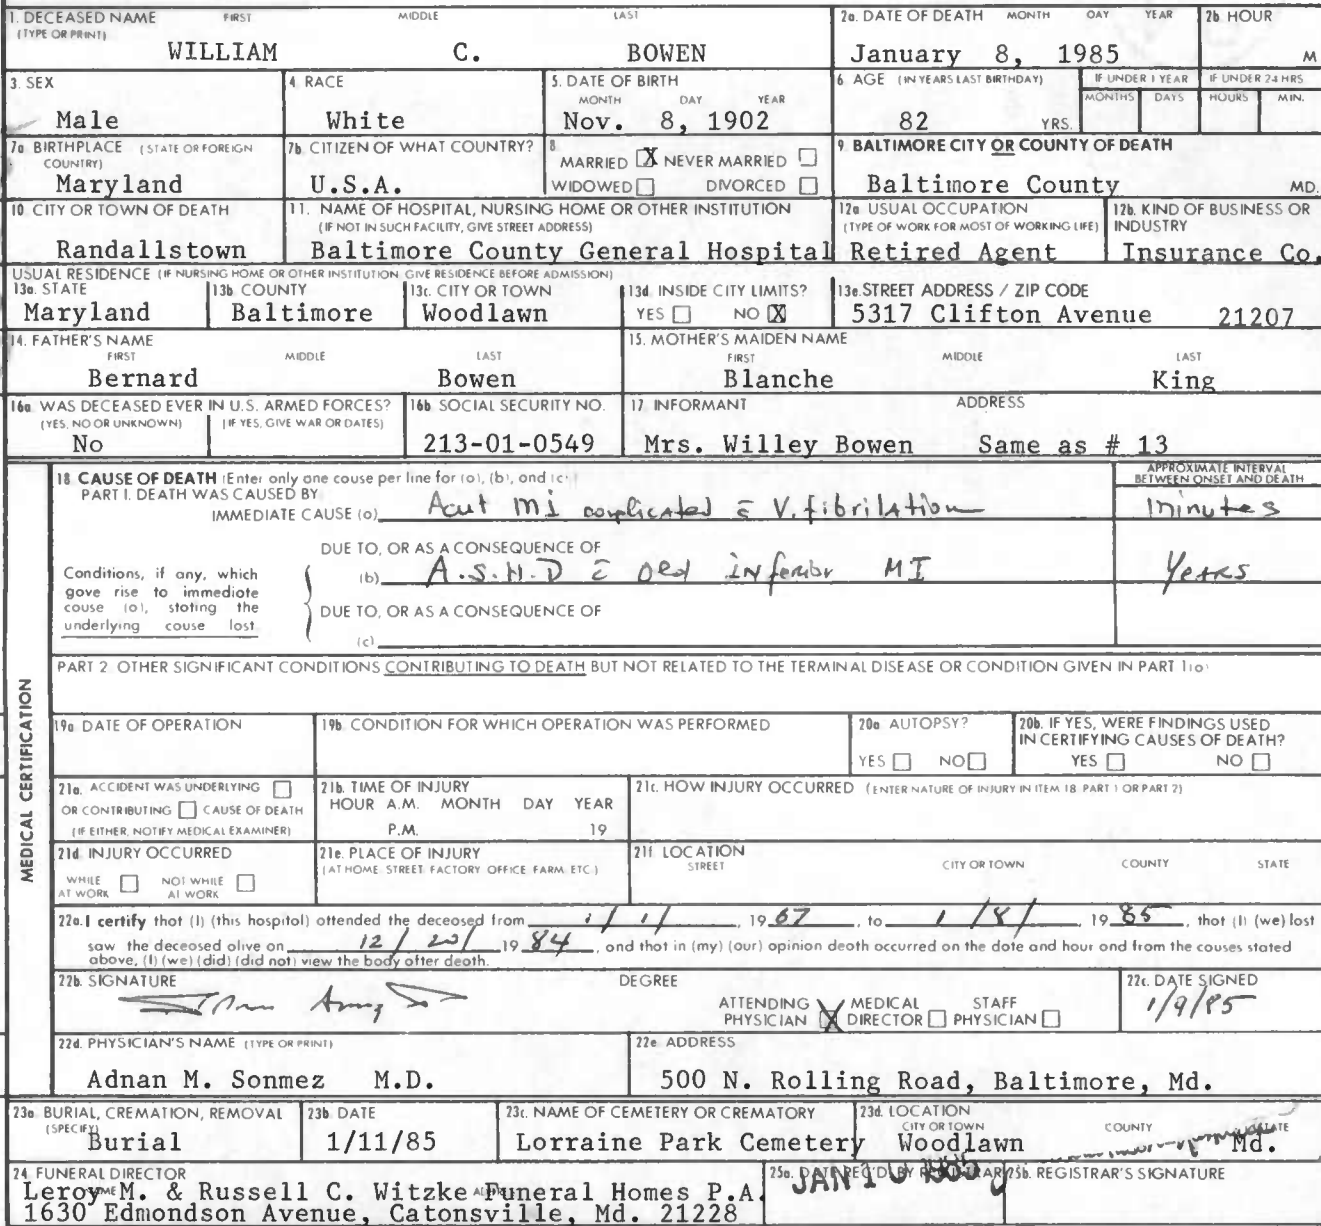 1. DECEASED NAME (TYPE OR PRINT) FIRST MIDDLE LAST
WILLIAM C. BOWEN
2a. DATE OF DEATH MONTH DAY YEAR
January 8, 1985
2b HOUR
M
3. SEX
Male
4. RACE
White
5. DATE OF BIRTH
MONTH DAY YEAR
Nov. 8, 1902
6 AGE (IN YEARS LAST BIRTHDAY)
82 YRS.
IF UNDER 1 YEAR
MONTHS DAYS
IF UNDER 24 HRS
HOURS MIN.
7a BIRTHPLACE (STATE OR FOREIGN COUNTRY)
Maryland
7b. CITIZEN OF WHAT COUNTRY?
U.S.A.
8
MARRIED X NEVER MARRIED
WIDOWED DIVORCED
9 BALTIMORE CITY OR COUNTY OF DEATH
Baltimore County MD.
10. CITY OR TOWN OF DEATH
Randallstown
11. NAME OF HOSPITAL, NURSING HOME OR OTHER INSTITUTION
(IF NOT IN SUCH FACILITY, GIVE STREET ADDRESS)
Baltimore County General Hospital
12a USUAL OCCUPATION
(TYPE OF WORK FOR MOST OF WORKING LIFE)
Retired Agent
12b. KIND OF BUSINESS OR INDUSTRY
Insurance Co.
USUAL RESIDENCE (IF NURSING HOME OR OTHER INSTITUTION GIVE RESIDENCE BEFORE ADMISSION)
13a. STATE
Maryland
13b COUNTY
Baltimore
13c. CITY OR TOWN
Woodlawn
13d. INSIDE CITY LIMITS?
YES NO X
13e. STREET ADDRESS / ZIP CODE
5317 Clifton Avenue 21207
14. FATHER'S NAME
FIRST MIDDLE LAST
Bernard Bowen
15. MOTHER'S MAIDEN NAME
FIRST MIDDLE LAST
Blanche King
16a WAS DECEASED EVER IN U.S. ARMED FORCES?
(YES, NO OR UNKNOWN) (IF YES, GIVE WAR OR DATES)
No
16b SOCIAL SECURITY NO.
213-01-0549
17 INFORMANT ADDRESS
Mrs. Willey Bowen Same as # 13
MEDICAL CERTIFICATION
18 CAUSE OF DEATH (Enter only one cause per line for (a), (b), and (c))
PART I. DEATH WAS CAUSED BY
IMMEDIATE CAUSE (a) Acut MI complicated c̄ V. fibrilation
APPROXIMATE INTERVAL BETWEEN ONSET AND DEATH
minutes
DUE TO, OR AS A CONSEQUENCE OF
(b) A.S.H.D c̄ old inferior MI
Years
Conditions, if any, which
gave rise to immediate
cause (a), stating the
underlying cause last
DUE TO, OR AS A CONSEQUENCE OF
(c)
PART 2 OTHER SIGNIFICANT CONDITIONS CONTRIBUTING TO DEATH BUT NOT RELATED TO THE TERMINAL DISEASE OR CONDITION GIVEN IN PART 1(a)
19a DATE OF OPERATION
19b. CONDITION FOR WHICH OPERATION WAS PERFORMED
20a AUTOPSY?
YES NO
20b. IF YES, WERE FINDINGS USED
IN CERTIFYING CAUSES OF DEATH?
YES NO
21a. ACCIDENT WAS UNDERLYING
OR CONTRIBUTING CAUSE OF DEATH
(IF EITHER, NOTIFY MEDICAL EXAMINER)
21b. TIME OF INJURY
HOUR A.M. MONTH DAY YEAR
P.M. 19
21c. HOW INJURY OCCURRED (ENTER NATURE OF INJURY IN ITEM 18 PART 1 OR PART 2)
21d INJURY OCCURRED
WHILE AT WORK NOT WHILE AT WORK
21e. PLACE OF INJURY
(AT HOME STREET FACTORY OFFICE FARM ETC.)
21f LOCATION
STREET CITY OR TOWN COUNTY STATE
22a. I certify that (I) (this hospital) attended the deceased from 1/1/ 1967, to 1/8/ 1985, that (I) (we) last
saw the deceased alive on 12/20/ 1984, and that in (my) (our) opinion death occurred on the date and hour and from the causes stated
above, (I) (we) (did) (did not) view the body after death.
22b. SIGNATURE
DEGREE
ATTENDING PHYSICIAN X MEDICAL DIRECTOR STAFF PHYSICIAN
22c. DATE SIGNED
1/9/85
22d. PHYSICIAN'S NAME (TYPE OR PRINT)
Adnan M. Sonmez M.D.
22e ADDRESS
500 N. Rolling Road, Baltimore, Md.
23a BURIAL, CREMATION, REMOVAL
(SPECIFY)
Burial
23b DATE
1/11/85
23c. NAME OF CEMETERY OR CREMATORY
Lorraine Park Cemetery
23d. LOCATION
CITY OR TOWN COUNTY STATE
Woodlawn Md.
24 FUNERAL DIRECTOR
Leroy M. & Russell C. Witzke Funeral Homes P.A.
1630 Edmondson Avenue, Catonsville, Md. 21228
25a. DATE REC'D BY REGISTRAR
JAN 10 1985
25b. REGISTRAR'S SIGNATURE